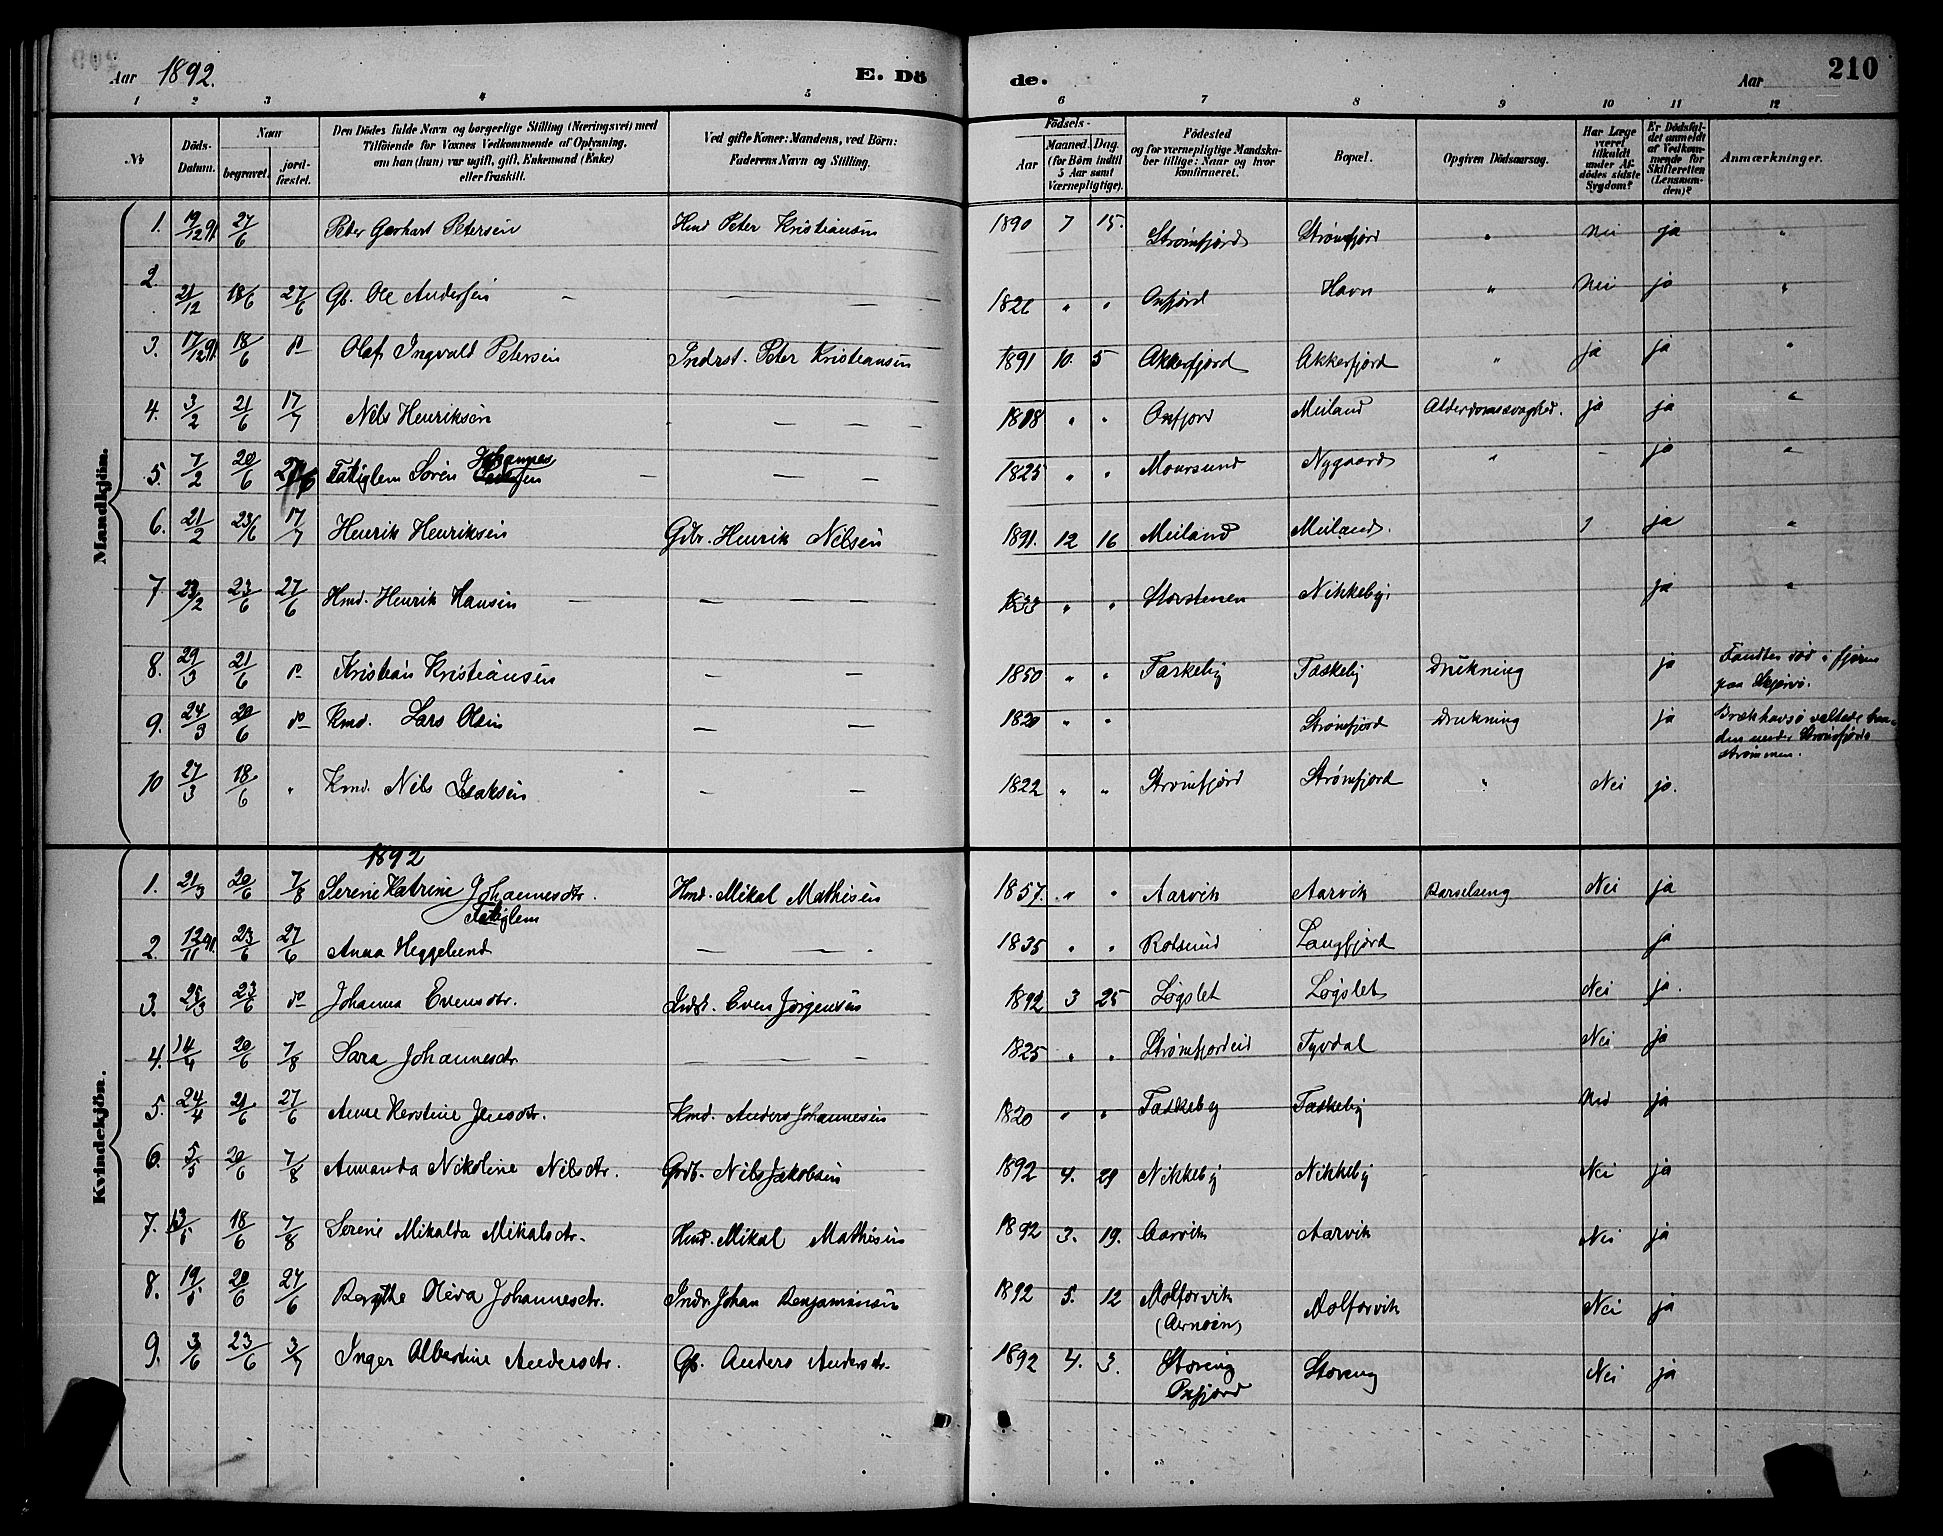 Aar 1892. E. Dö de. Aar 210
1 2 3 4 5 6 7 8 9 10 11 12
No
Döds-Datum.
Naar
begravet.
jord-fæstet.
Den Dödes fulde Navn og borgerlige Stilling (Næringsvei) med
Tilföiende for Voxnes Vedkommende af Oplysning,
om han (hun) var ugift, gift, Enkemand (Enke)
eller fraskilt.
Ved gifte Koner: Mandens, ved Börn:
Faderens Navn og Stilling.
Födsels-
Aar
Maaned. Dag.
(for Börn indtil
5 Aar samt
Værnepligtige).
Födested
og for værnepligtige Mandska-
ber tillige: Naar og hvor
konfirmeret.
Bopæl.
Opgiven Dödsaarsag.
Har Læge
været
tilkaldt
under Af-
dödes sidste
Sygdom?
Er Dödsfal-
det anmeldt
af Vedkom-
mende for
Skifteretten
(Lensman-
den)?
Anmærkninger.
Mandkjön.
1. 19/12 91 27/6 Peter Gerhart Petersen Kmd Peter Kristiansen 1890 7 15. Strömfjord Strömfjord " Nei ja "
2. 21/12 18/6 27/6 Gb. Ole Andersen — — — 1826 " " Oxfjord Havn " Nei ja "
3. 17/12 91 18/6 do Olaf Ingvald Petersen Indrst. Peter Kristiansen 1891 10. 5 Akkerfjord Akkerfjord " ja ja "
4. 3/2 21/6 17/7 Nils Henriksen — — — 1818 " " Oxfjord Meiland Alderdomssvaghed. ja ja "
5. 7/2 20/6 Fatiglem Sören Johannes — — — 1825 " " Maursund Nygaard " - ja "
6. 21/2 23/6 17/7 Henrik Henriksen Gbr. Henrik Nilsen 1891. 12 16 Meiland Meiland. ja "
7 23/2 23/6 27/6 Kmd. Henrik Hansen — — — 1833 " " Storstenen Nikkeby. ja "
8. 29/3 21/6 do Kristian Kristiansen — — 1850 " " Taskeby Taskeby Drukning ja Fandtes död i fjæren
paa Skjervö.
9. 24/3 20/6 do Kmd. Lars Olsen — — 1820 " " Strömfjord Drukning ja
strömmen.
10 27/3 18/6 " Kmd. Nils Isaksen — — 1822 " " Strömfjord Strömfjord " Nei ja.
Kvindekjön.
1892
1. 21/3 20/6 7/8 Serine Katrine Johannesdtr. Kmd. Mikal Mathisen 1857. " " Aarvik Aarvik Barselseng Nei ja
Fatiglem
2. 12/11 91. 23/6 27/6 Anna Heggelund — — — 1835 " " Rotsund Langfjord ja
3. 25/3 23/6 do Johanna Evensdtr. Indst. Even Jörgensen 1892 3 25 Lögslet Lögslet Nei ja.
4. 14/4 20/6 7/8 Sara Johannesdtr — — — 1825 " " Strömfjordeid Tyvdal Nei ja
5. 24/4 21/6 27/6 Anne Kerstine Jensdtr. Kmd. Anders Johannesen 1820 " " Taskeby Taskeby Nei ja
6. 5/5 20/6 7/8 Amanda Nikoline Nilsdtr. Grdb. Nils Jakobsen 1892 4. 29 Nikkeby Nikkeby - Nei ja
7. 13/5 18/6 7/8 Serine Mikalda Mikalsdtr. Kmd. Mikal Mathisen 1892 3. 19. Aarvik Aarvik Nei ja
8. 19/5 20/6 27/6 Berthe Oliva Johannesdtr. Indr. Johan Benjaminsen 1892 5. 12 Molforvik Molforvik Nei ja
(Arnöen)
9. 3/6 23/6 3/7 Inger Albertine Andersdtr. Gb. Anders Andersdtr. 1892 4. 3. Storeng Storeng Nei ja
Oxfjord